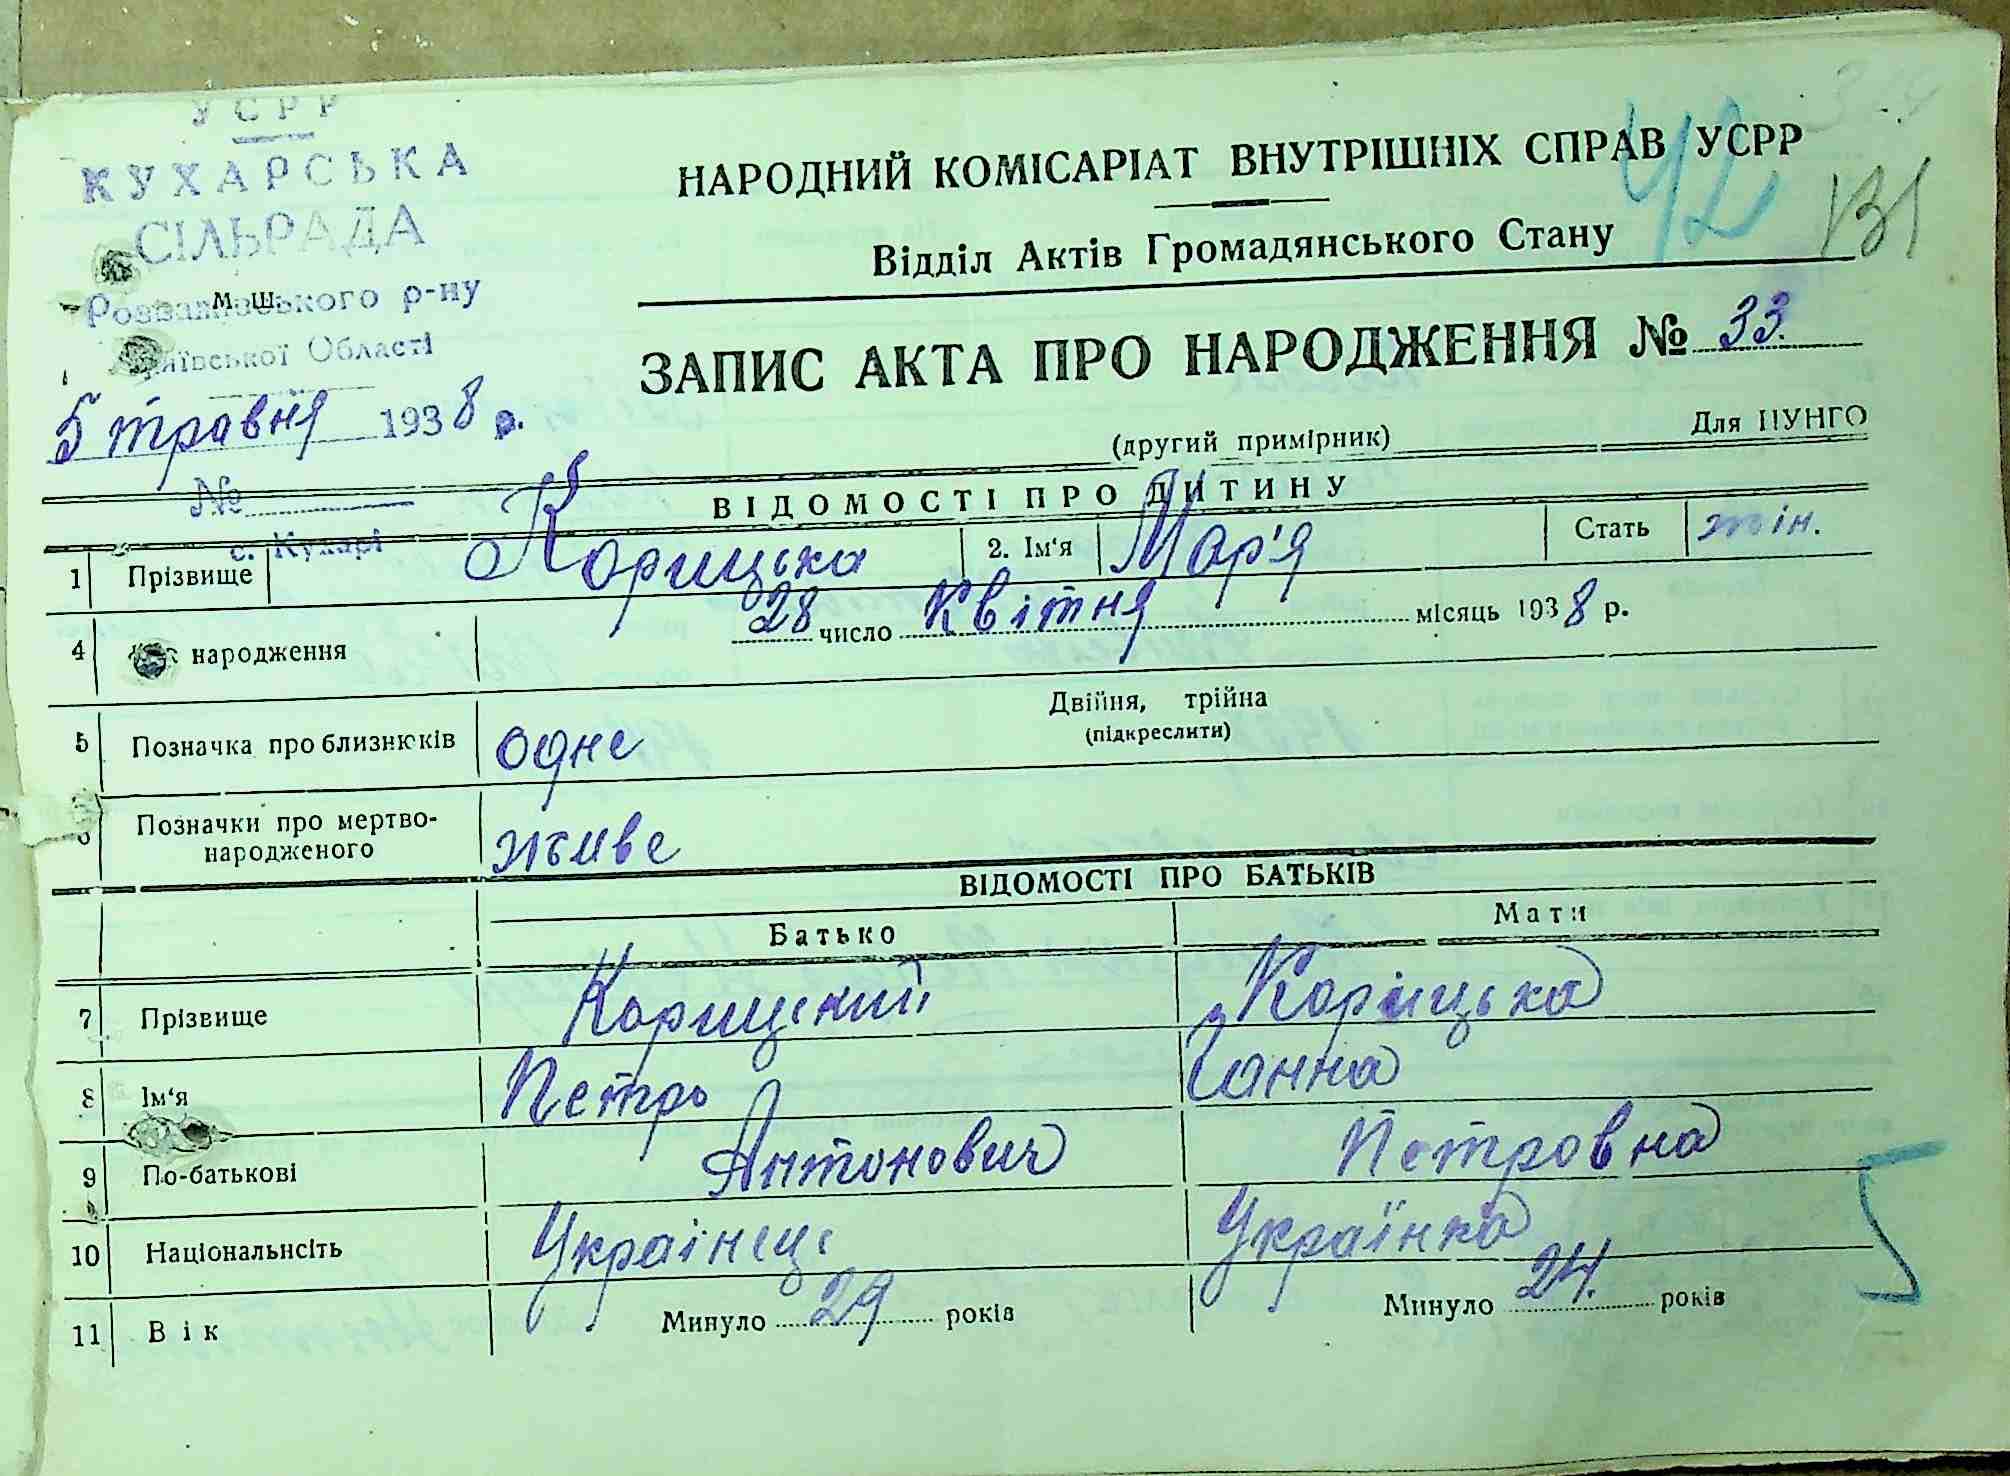 УСРР
КУХАРСЬКА
СІЛЬРАДА
Розважівського р-ну
Київської Області
5 травня 1938 р.
№
с. Кухарі
НАРОДНИЙ КОМІСАРІАТ ВНУТРІШНІХ СПРАВ УСРР
42
131
Відділ Актів Громадянського Стану
ЗАПИС АКТА ПРО НАРОДЖЕННЯ № 33.
(другий примірник)
Для ЦУНГО
ВІДОМОСТІ ПРО ДИТИНУ
1 Прізвище Корицька 2. Ім'я Мар'я Стать жін.
4 народження 28 число Квітня місяць 1938 р.
5 Позначка про близнюків одне Двійня, трійна
(підкреслити)
Позначки про мертво-
народженого живе
ВІДОМОСТІ ПРО БАТЬКІВ
Батько Мати
7 Прізвище Корицький Корицька
8 Ім'я Петро Ганна
9 По-батькові Антонович Петровна
10 Національнсіть Українець Українка
11 Вік Минуло 29 років Минуло 24. років